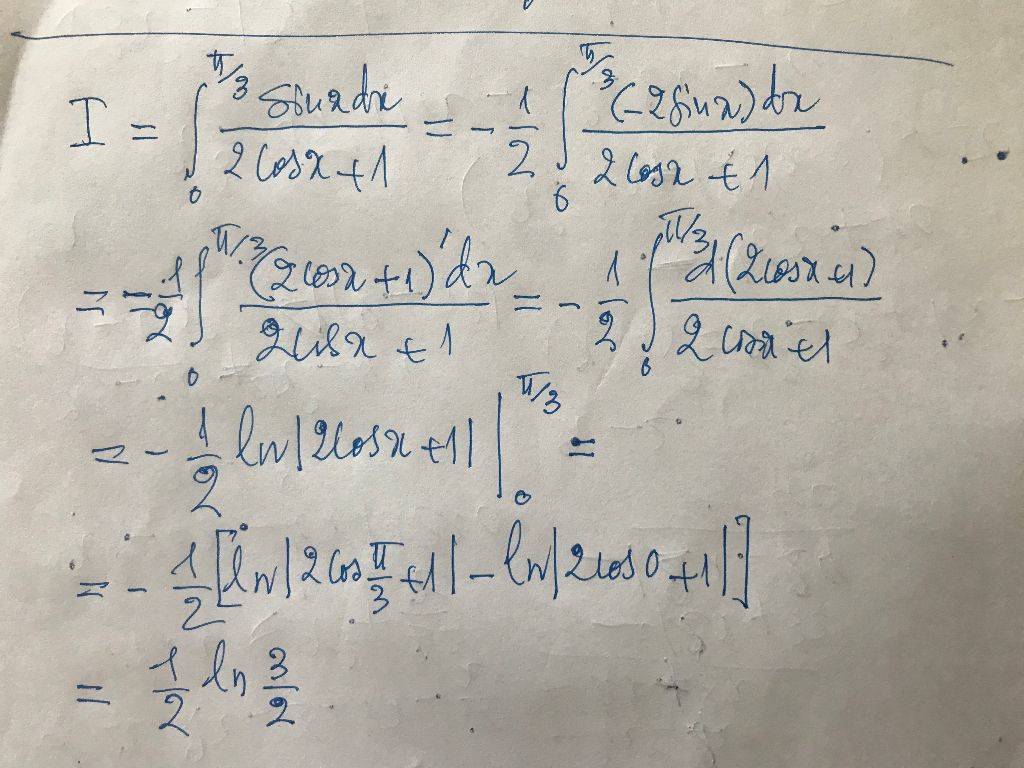 I = ∫₀^{π/3} sinx dx / (2cosx + 1) = - 1/2 ∫₀^{π/3} (-2sinx) dx / (2cosx + 1)
= - 1/2 ∫₀^{π/3} (2cosx + 1)' dx / (2cosx + 1) = - 1/2 ∫₀^{π/3} d(2cosx + 1) / (2cosx + 1)
= - 1/2 ln|2cosx + 1| |₀^{π/3} =
= - 1/2 [ln|2cos π/3 + 1| - ln|2cos0 + 1|]
= 1/2 ln 3/2